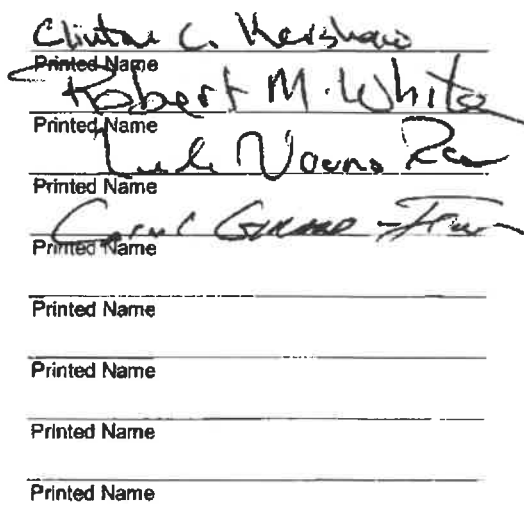 Clinton C. Kershaw
Printed Name
Robert M. White
Printed Name
Printed Name
Printed Name
Printed Name
Printed Name
Printed Name
Printed Name